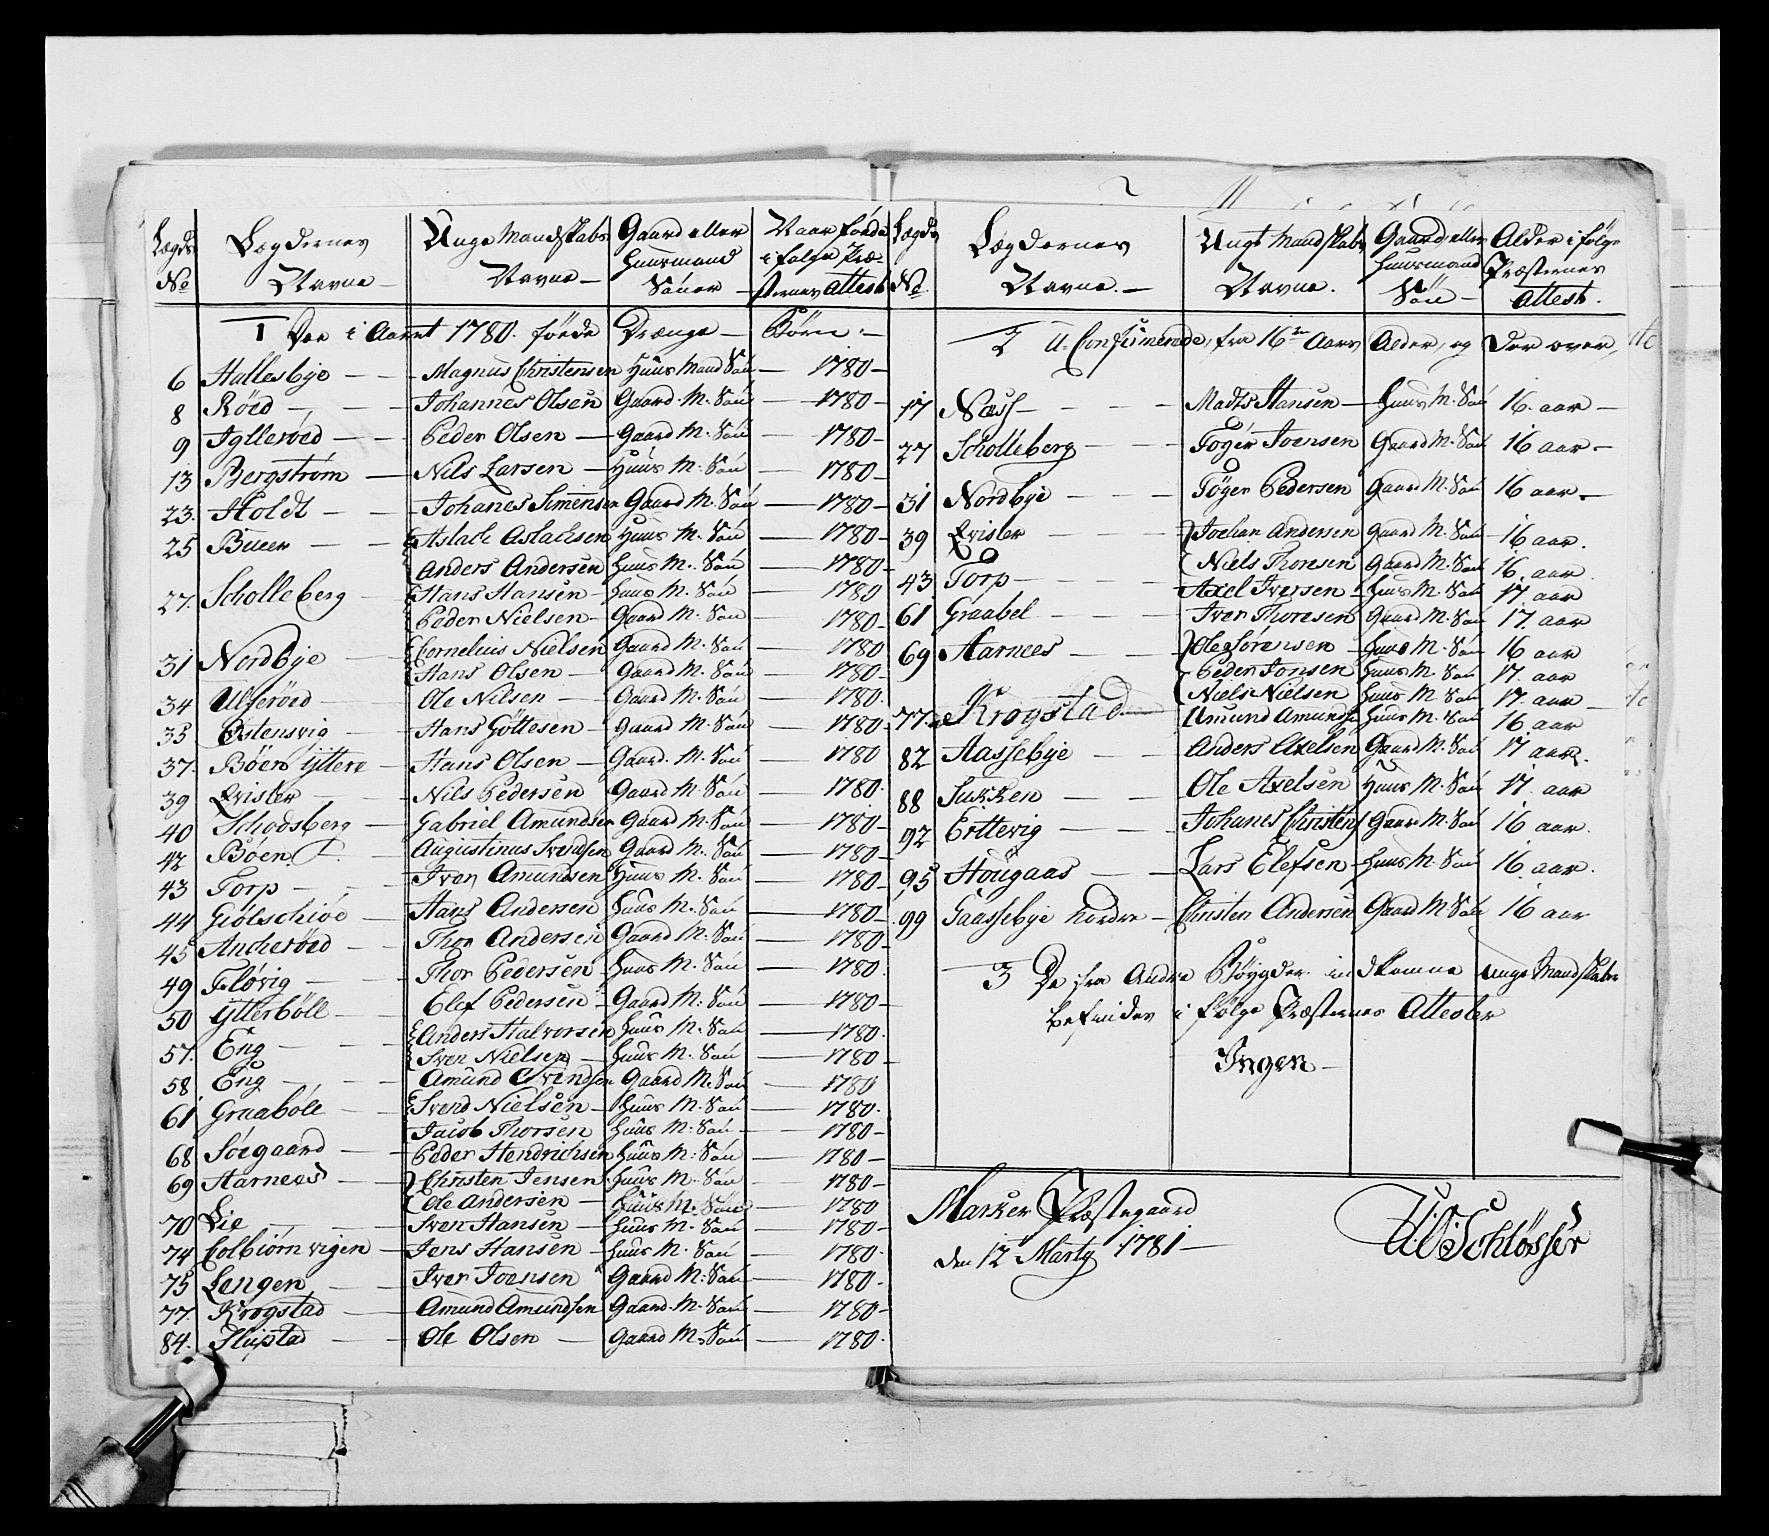 Lægds No | Lægdernes Navne | Unge Mandskabs Navne | Gaard eller Huusmand Söner | Naar föede i følge Præsternes Attest
1 Dee i Aaret 1780. föede Drænge Börn
6 Hallesbye — Magnus Christensen Huus Mand Sön — 1780 —
8 Röed — Johannes Olsen Gaard M. Sön — 1780 —
9 Iglleröed — Peder Olsen — Gaard M. Sön — 1780 —
13 Bergström — Nils Larsen — Huus M. Sön — 1780 —
23. Holdt — Johanes Simensen Gaard M. Sön — 1780 —
25 Bueer — Aslach Aslachsen Huus M. Sön — 1780 —
Anders Andersen Huus M. Sön — 1780 —
27. Scholleberg — Hans Hansen — Huus M. Sön — 1780
Peder Nielsen — Gaard M. Sön — 1780 —
31 Nordbye — Cornelius Nielsen Gaard M. Sön — 1780
Hans Olsen — Gaard M. Sön — 1780 —
34 Ulferöed — Ole Nilsen — Gaard M. Sön — 1780.
35 Östensvig — Hans Göttesen — Gaard M. Sön — 1780 —
37. Böen Yttere — Hans Olsen — Gaard. M. Sön — 1780
39 Qvisler — Nils Pedersen Gaard M. Sön — 1780.
40 Schodsberg — Gabriel Amundsen Gaard M. Sön — 1780 —
42 Böen — Augustinus Svendsen Gaard M. Sön — 1780 —
43 Torp — Iver Amundsen Huus M. Sön — 1780 —
44 Giölschiöe — Hans Andersen Huus M. Sön — 1780 —
45 Ancheröed — Thor Andersen Gaard M. Sön — 1780 —
49 Flövig — Thor Pedersen Huus M. Sön — 1780.
50 Ytterböll — Elef Pedersen — Gaard M. Sön — 1780 —
57. Eng — Anders Halvorsen Huus M. Sön — 1780.
Sven Nielsen — Huus M. Sön — 1780 —
58 Eng — Amund Svendsen Gaard M. Sön — 1780
61 Graaböle — Svend Nielsen — Huus M. Sön — 1780.
Jacob Thorsen Huus M. Sön — 1780 —
68 Söegaard — Peder Hendrichsen Huus M. Sön — 1780 —
69 Aarnees — Christen Jensen Huus M. Sön — 1780 —
Ole Andersen — Huus M. Sön — 1780
70 Lie — Sven Hansen — Huus M. Sön — 1780 —
74 Colbiörnvigen — Jens Hansen — Huus M. Sön — 1780.
75 Lengen — Iver Joensen Gaard M. Sön — 1780 —
77. Krogstad — Amund Amundsen Gaard M. Sön — 1780 —
84. Slupstad — Ole Olsen — Gaard M. Sön — 1780.
Lægds No. | Lægdernes Navne. — | Ungt Mandskabs Navne. | Gaard eller Huusmand Sön — | Alder i følge Præsternes Attest.
2 U-Confirmerede, fra 16ten Aars Alder, og Der over,
17 Næss — Madts Hansen — Huus M. Sön 16. aar —
27 Scholleberg — Töger Joensen Gaard M. Sön 16 aar —
31 Nordbye — Töger Pedersen Gaard M. Sön 16 aar. —
39 Qvisler — Jochan Andersen Gaard M. Sön 16 aar.
Niels Thoresen Gaard M. Sön 16. aar
43 Torp — Axel Iversen Huus M. Sön 17. aar
61 Graabel — Iver Thoresen Gaard M. Sön 17. aar
69 Aarnees — Ole Sörensen Huus M. Sön 16 aar
Peder Jonsen Huus M. Sön 17. aar
Niels Nielsen Huus M. Sön 17. aar —
77. Krogstad — Amund Amunds Huus M. Sön 16 aar
82 Aassebye — Anders Axelsen Gaard M. Sön 17 aar.
88 Sukken — Ole Axelsen Huus M. Sön 17. aar
92 Ertevig — Johanes Christens Gaard M. Sön 16 aar.
95 Hougaas — Lars Elefsen Huus M. Sön 16. aar.
99 Taassebye nordre — Christen Andersen Gaard M Sön 16 aar
3 De fra Andre Böygder indkomne unge Mandskaber
befindes i følge Præsternes Attester
Ingen —
Marker Præstegaard
den 12 Marty 1781 —
Schlösser